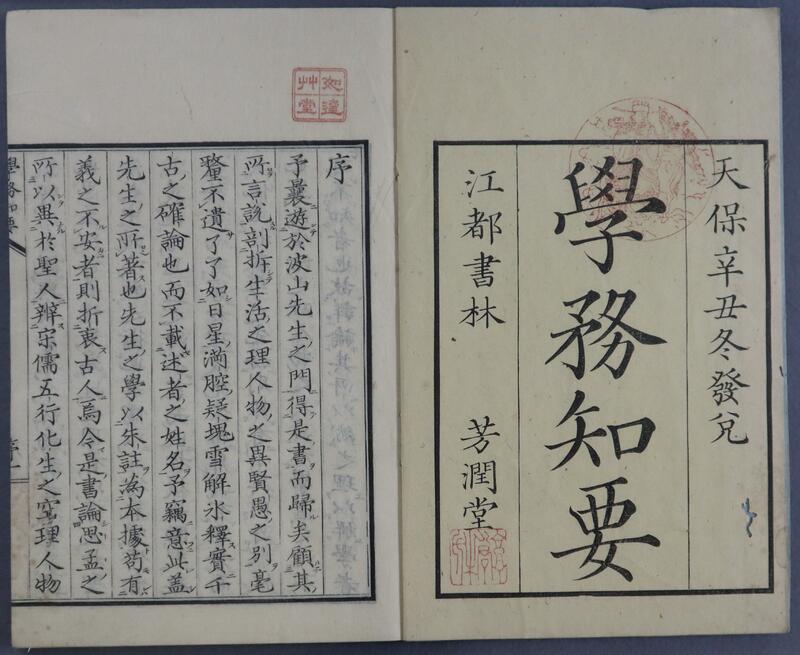 天保辛丑冬發兌
學務知要
江都書林 芳潤堂
如達艸堂
序
予曩遊於波山先生之門得是書而歸矣顧其
所言說剖拆生活之理人物之異賢愚之別毫
釐不遺了了如日星滿腔疑塊雪解氷釋實千
古之確論也而不載述者之姓名予竊意此蓋
先生之所著也先生之學以朱註為本據苟有
義之不安者則折衷古人焉今是書論思孟之
所以異於聖人辨宋儒五行化生之空理人物
學務知要
序一